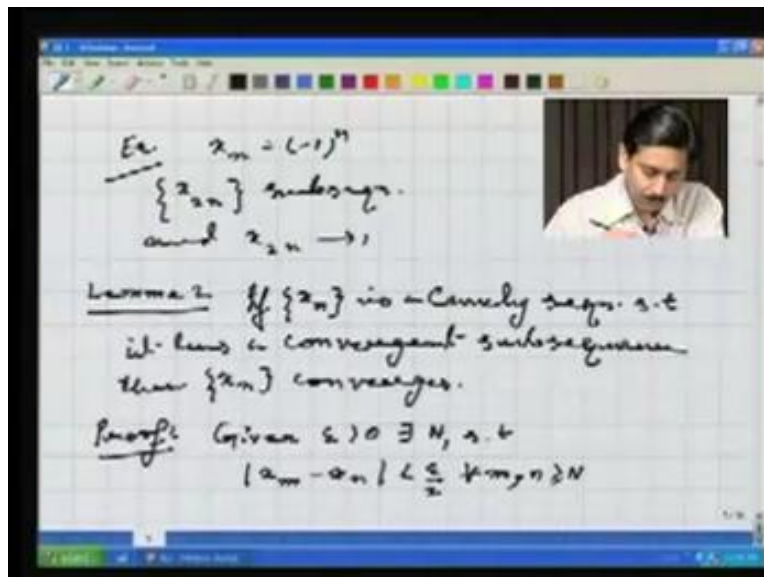 Ex. xₙ = (-1)ⁿ
{x₂ₙ} subseqn.
and x₂ₙ → 1
Lemma 2. If {xₙ} is a Cauchy seqn. s.t
it has a convergent subsequence
then {xₙ} converges.
Proof: Given ε > 0 ∃ N, s.t
|xₘ - xₙ| < ε/2 ∀ m, n ≥ N